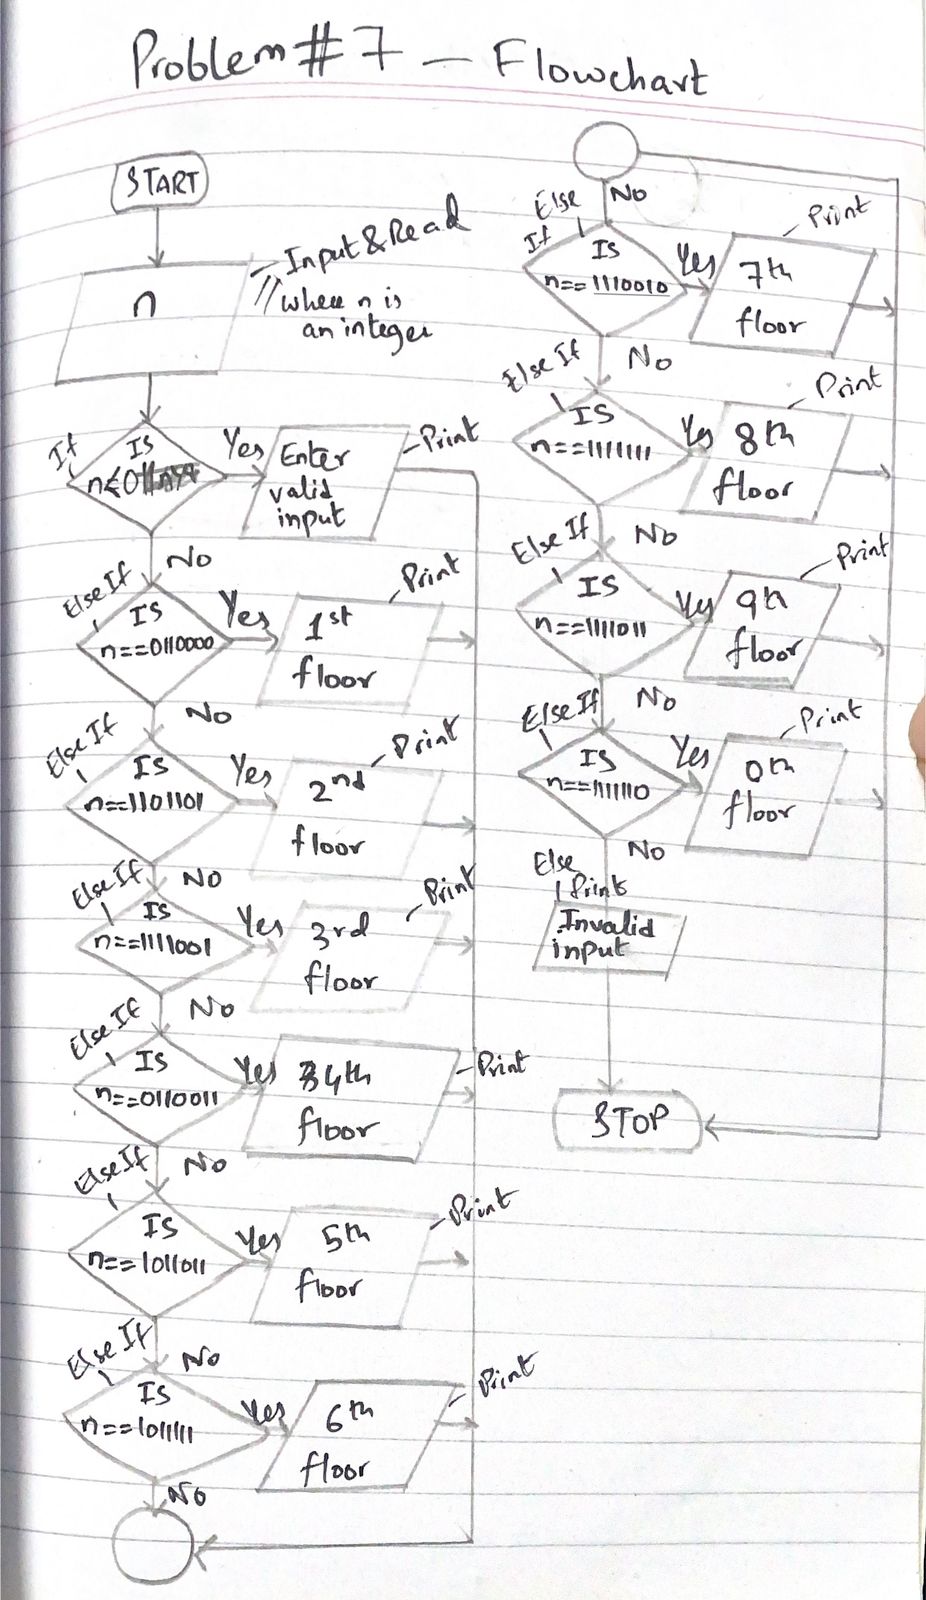 Problem # 7 – Flowchart
START
n
Input & Read
// where n is
an integer
If
Is
Yes
Enter
valid
input
Print
No
Else If
Is
n==0110000
Yes
1st
floor
Print
No
Else If
Is
n==1101101
Yes
2nd
floor
Print
No
Else If
Is
n==1111001
Yes
3rd
floor
Print
No
Else If
Is
n==0110011
Yes
4th
floor
Print
No
Else If
Is
n==1011011
Yes
5th
floor
Print
No
Else If
Is
n==1011111
Yes
6th
floor
Print
No
No
Else
If
Is
n==1110010
Yes
7th
floor
Print
No
Else If
Is
n==1111111
Yes
8th
floor
Print
No
Else If
Is
n==1111011
Yes
9th
floor
Print
No
Else If
Is
n==1111110
Yes
0th
floor
Print
No
Else
Print
Invalid
input
STOP